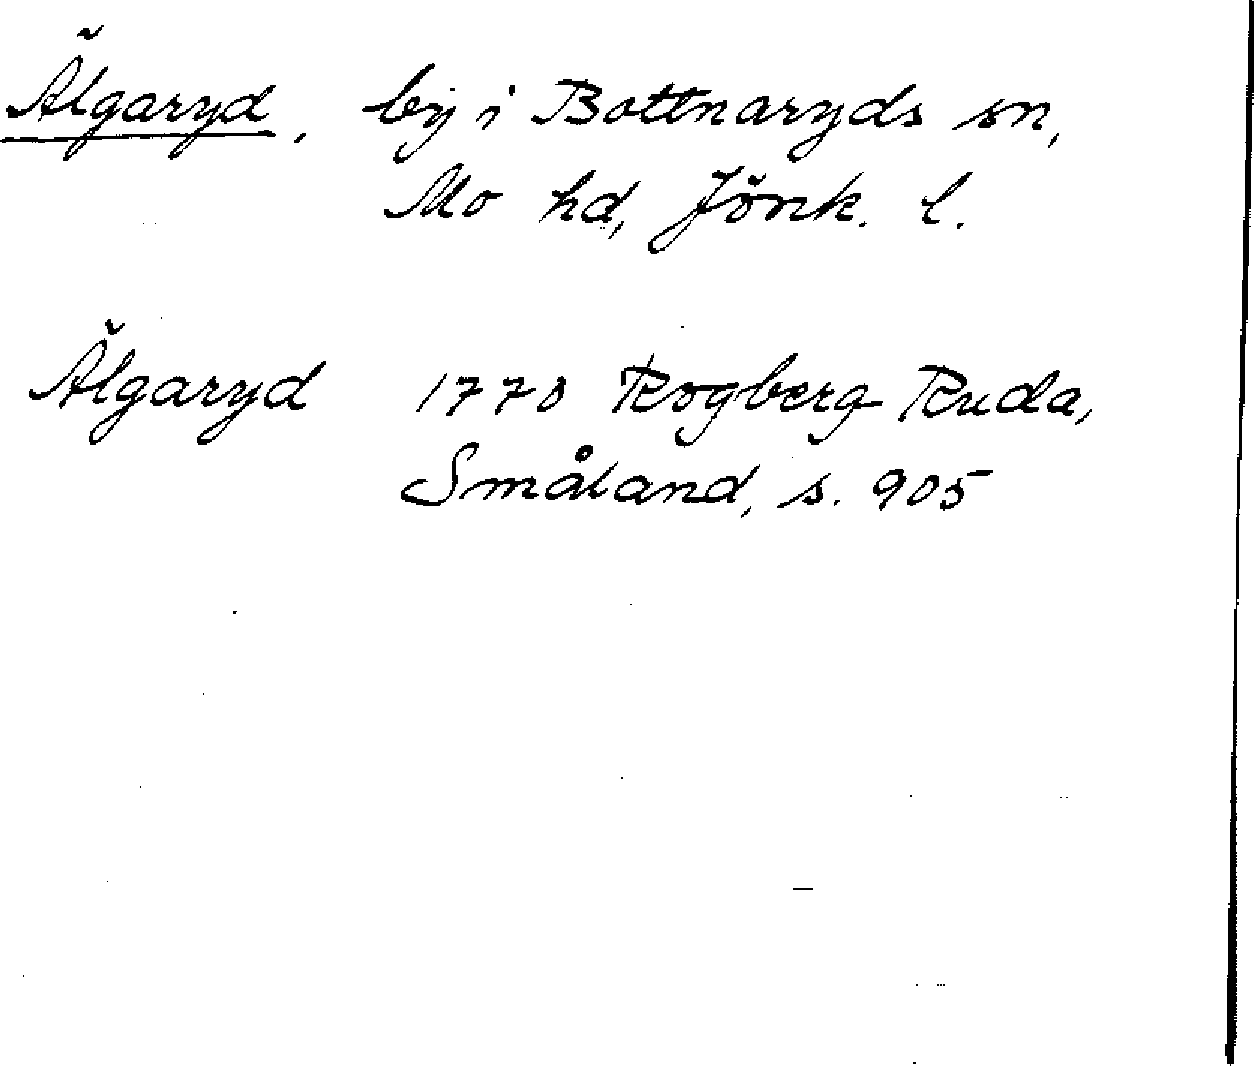 Älgaryd, by i Bottnaryds sn,
Mo hd, Jönk. l.
Älgaryd 1770 Rogberg-Ruda,
Småland, s. 905